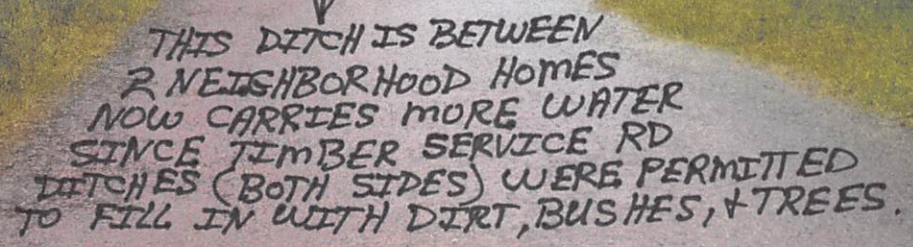 THIS DITCH IS BETWEEN
2 NEIGHBORHOOD HOMES
NOW CARRIES MORE WATER
SINCE TIMBER SERVICE RD
DITCHES (BOTH SIDES) WERE PERMITTED
TO FILL IN WITH DIRT, BUSHES, + TREES.